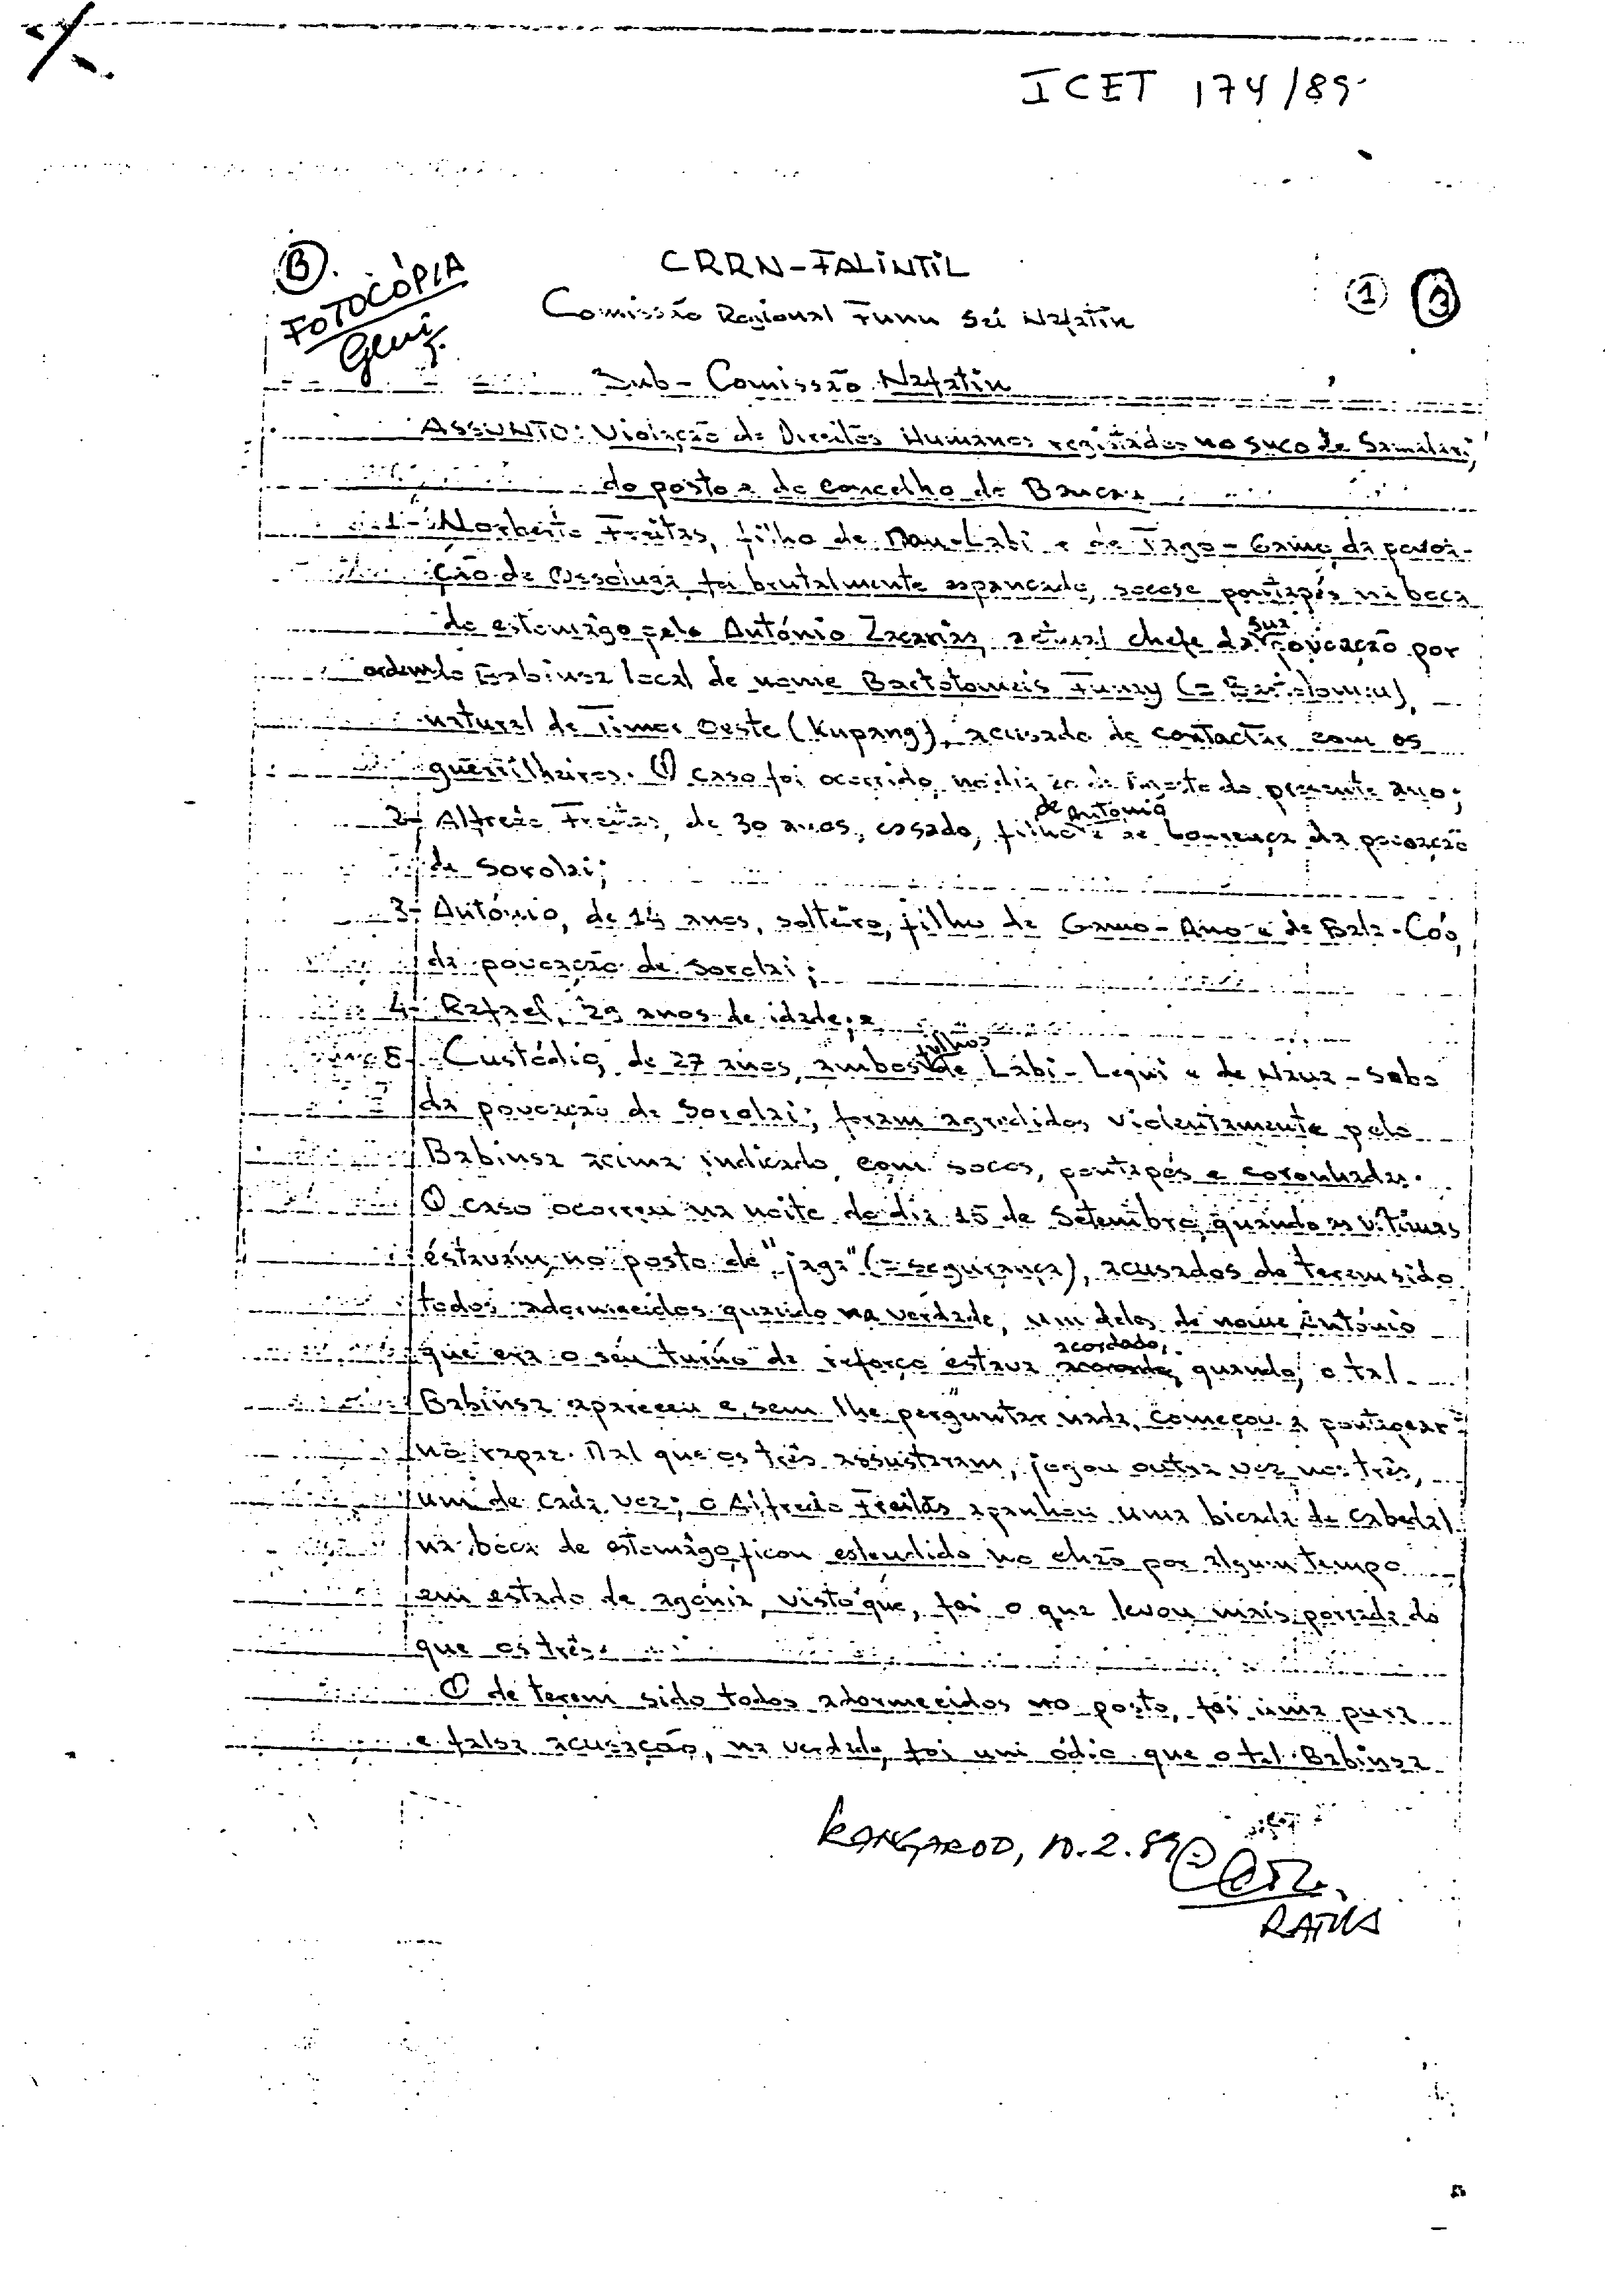 ICET 174/89
B.
FOTOCÓPIA
CRRN-FALINTIL
Comissão Regional Funu Sei Nafatin
1 3
Sub-Comissão Nafatin
ASSUNTO: Violação de Direitos Humanos registados no suco de Samalari,
do posto e do concelho de Baucau
1- Norberto Freitas, filho de Mau-Labi e de Tago-Gamo, da povoa-
ção de foi brutalmente espancado, socose pontapés na boca
do estomâgo pelo António Zacarias, actual chefe da sua povoação por
ordem do Babinsa local de nome Bartolomeis Funay (= Bartolomeu),
natural de Timor Oeste (Kupang), acusado de contactar com os
guerrilheiros. O caso foi ocorrido, no dia 20 de do presente ano;
2- Alfredo Freitas, de 30 anos, casado, filho de António e de Lourença da povoação
de Sorolai;
3- António, de 14 anos, solteiro, filho de Gamo-Ano e de Bala-Coó,
da povoação de Sorolai;
4- Rafael, 29 anos de idade; e
5- Custódio, de 27 anos, ambos filhos de Labi-Lequi e de Naua-Sabo
da povoação de Sorolai; foram agredidos violentamente pelo
Babinsa acima indicado, com socos, pontapés e coronhadas.
O caso ocorreu na noite do dia 15 de Setembro, quando as vítimas
estavam no posto de "jaga" (= segurança), acusados de terem sido
todos adormecidos quando na verdade, um deles de nome António
que era o seu turno de reforço estava acordado, quando, o tal
Babinsa apareceu e, sem lhe perguntar nada, começou a pontapear
no rapaz. Mal que os três assustaram, jogou outra vez nos três,
um de cada vez; o Alfredo Freitas apanhou uma bicada de cabedal
na boca de estomâgo, ficou estendido no chão por algum tempo
em estado de agonia, visto que, foi o que levou mais porrada do
que os três.
O de terem sido todos adormecidos no posto, foi uma pura
e falsa acusação, na verdade, foi um ódio que o tal Babinsa
KANGAROO, 10.2.89